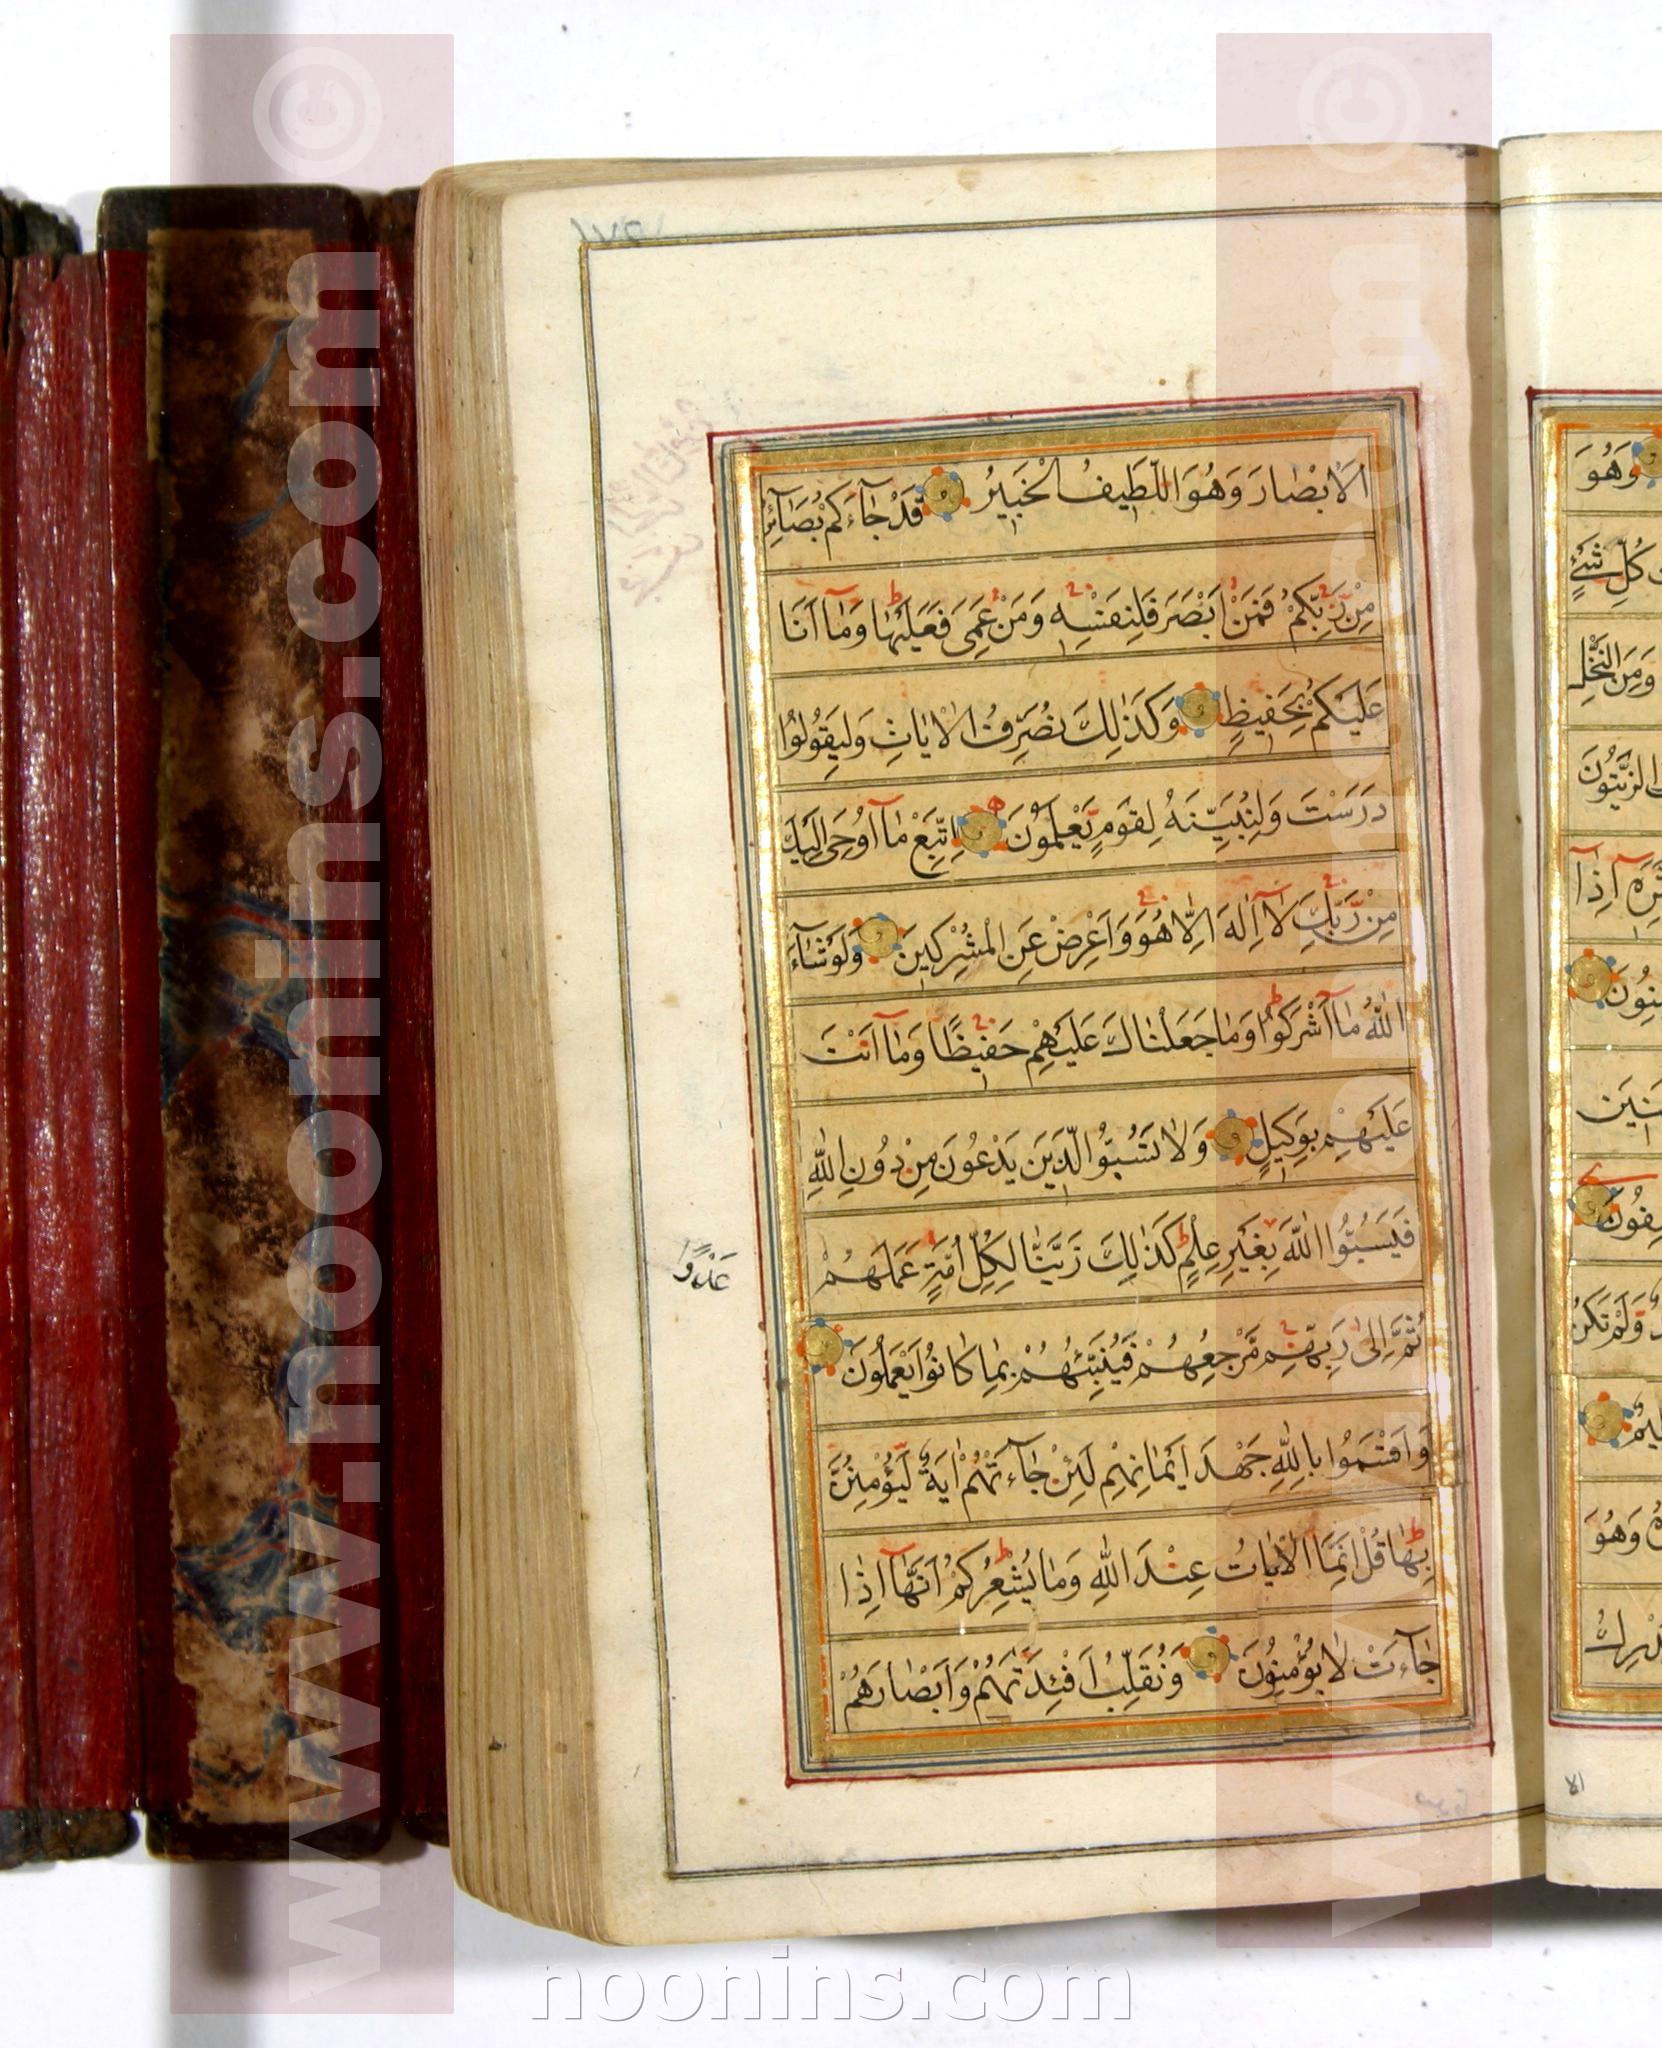 الْاَبْصٰارَ وَهُوَ اللَّطِيفُ الْخَبِيرُ قَدْ جٰآءَكُمْ بَصٰآئِرُ
مِنْ رَبِّكُمْ فَمَنْ اَبْصَرَ فَلِنَفْسِهِ وَمَنْ عَمِىَ فَعَلَيْهٰا وَمٰآ اَنَا
عَلَيْكُمْ بِحَفِيظٍ وَكَذٰلِكَ نُصَرِّفُ الْاٰيٰاتِ وَلِيَقُولُوا
دَرَسْتَ وَلِنُبَيِّنَهُ لِقَوْمٍ يَعْلَمُونَ اِتَّبِعْ مٰآ اُوحِىَ اِلَيْكَ
مِنْ رَبِّكَ لٰآ اِلٰهَ اِلَّا هُوَ وَاَعْرِضْ عَنِ الْمُشْرِكِينَ وَلَوْ شٰآءَ
اللّٰهُ مٰآ اَشْرَكُوا وَمٰا جَعَلْنٰاكَ عَلَيْهِمْ حَفِيظًا وَمٰآ اَنْتَ
عَلَيْهِمْ بِوَكِيلٍ وَلٰا تَسُبُّوا الَّذِينَ يَدْعُونَ مِنْ دُونِ اللّٰهِ
فَيَسُبُّوا اللّٰهَ بِغَيْرِ عِلْمٍ كَذٰلِكَ زَيَّنّٰا لِكُلِّ اُمَّةٍ عَمَلَهُمْ
عَدْوًا
ثُمَّ اِلٰى رَبِّهِمْ مَرْجِعُهُمْ فَيُنَبِّئُهُمْ بِمٰا كٰانُوا يَعْمَلُونَ
وَاَقْسَمُوا بِاللّٰهِ جَهْدَ اَيْمٰانِهِمْ لَئِنْ جٰآءَتْهُمْ اٰيَةٌ لَيُؤْمِنُنَّ
بِهٰا قُلْ اِنَّمَا الْاٰيٰاتُ عِنْدَ اللّٰهِ وَمٰا يُشْعِرُكُمْ اَنَّهٰآ اِذٰا
جٰآءَتْ لٰا يُؤْمِنُونَ وَنُقَلِّبُ اَفْئِدَتَهُمْ وَاَبْصٰارَهُمْ
وَهُوَ
كُلِّ شَىْءٍ
وَمِنَ النَّخْلِ
الزَّيْتُونَ
اِذٰا
وَلَمْ تَكُنْ
وَهُوَ
www.noonins.com ©
noonins.com